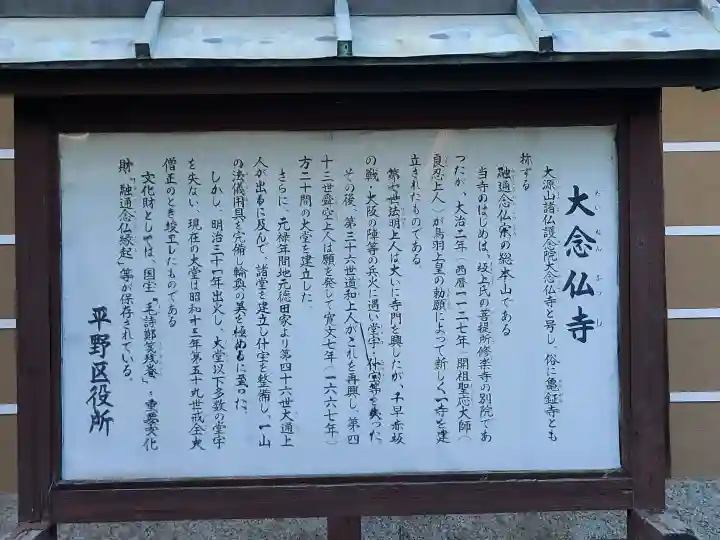 大念仏寺
だいねんぶつじ
大源山諸仏護念院大念仏寺と号し、俗に亀鉦寺とも
称する
融通念仏宗の総本山である
当寺のはじめは、坂上氏の菩提所修楽寺の別院であ
ったが、大治二年(西暦一一二七年)開祖聖応大師(
良忍上人)が鳥羽上皇の勅願によって新しく一寺を建
立されたものである。
第七世法明上人は大いに寺門を興したが、千早赤坂
の戦・大阪の陣等の兵火に遇い堂宇・什宝等を失った
その後、第三十六世道和上人がこれを再興し、第四
十三世舜空上人は願を発して寛文七年(一六六七年)
方二十間の大堂を建立した。
さらに、元禄年間地元徳田家より第四十六世大通上
人が出るに及んで、諸堂を建立し什宝を整備し、一山
の法儀用具を完備し輪奐の美を極めるに至った。
しかし、明治三十一年出火し、大堂以下多数の堂宇
を失ない、現在の大堂は昭和十三年第五十九世戒全大
僧正のとき竣工したものである
文化財としては、国宝「毛詩鄭箋残巻」・重要文化
財「融通念仏縁起」等が保存されている。
平野区役所